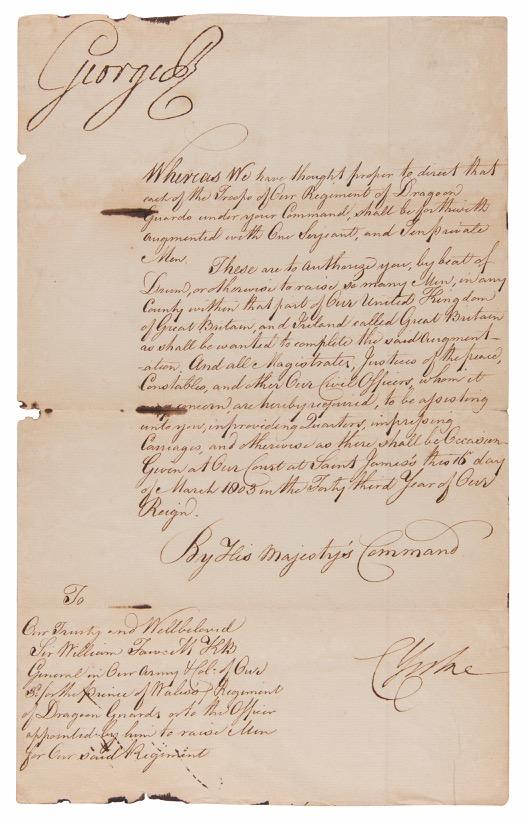 George R
Whereas We have thought proper to direct that
each of the Troops of Our Regiment of Dragoon
Guards under your Command, shall be forthwith
augmented with One Serjeant, and Ten private
Men.
These are to Authorize you, by beat of
Drum, or otherwise to raise so many Men, in any
County within that part of Our United Kingdom
of Great Britain, and Ireland called Great Britain
as shall be wanted to complete the said Augment-
-ation. And all Magistrates, Justices of the peace,
Constables, and other Our Civil Officers, whom it
concern are hereby required, to be assisting
unto you, in providing Quarters, impressing
Carriages, and otherwise as there shall be Occasion
Given at Our Court at Saint James's this day
of March 1803 in the Forty third Year of Our
Reign.
By His Majesty's Command
To
Our Trusty and Wellbeloved
Sir William Fawcett KB
General in Our Army & Col. of Our
3d. or the Prince of Wales's Regiment
of Dragoon Guards or to the Officer
appointed by him to raise Men
for Our said Regiment
C Yorke